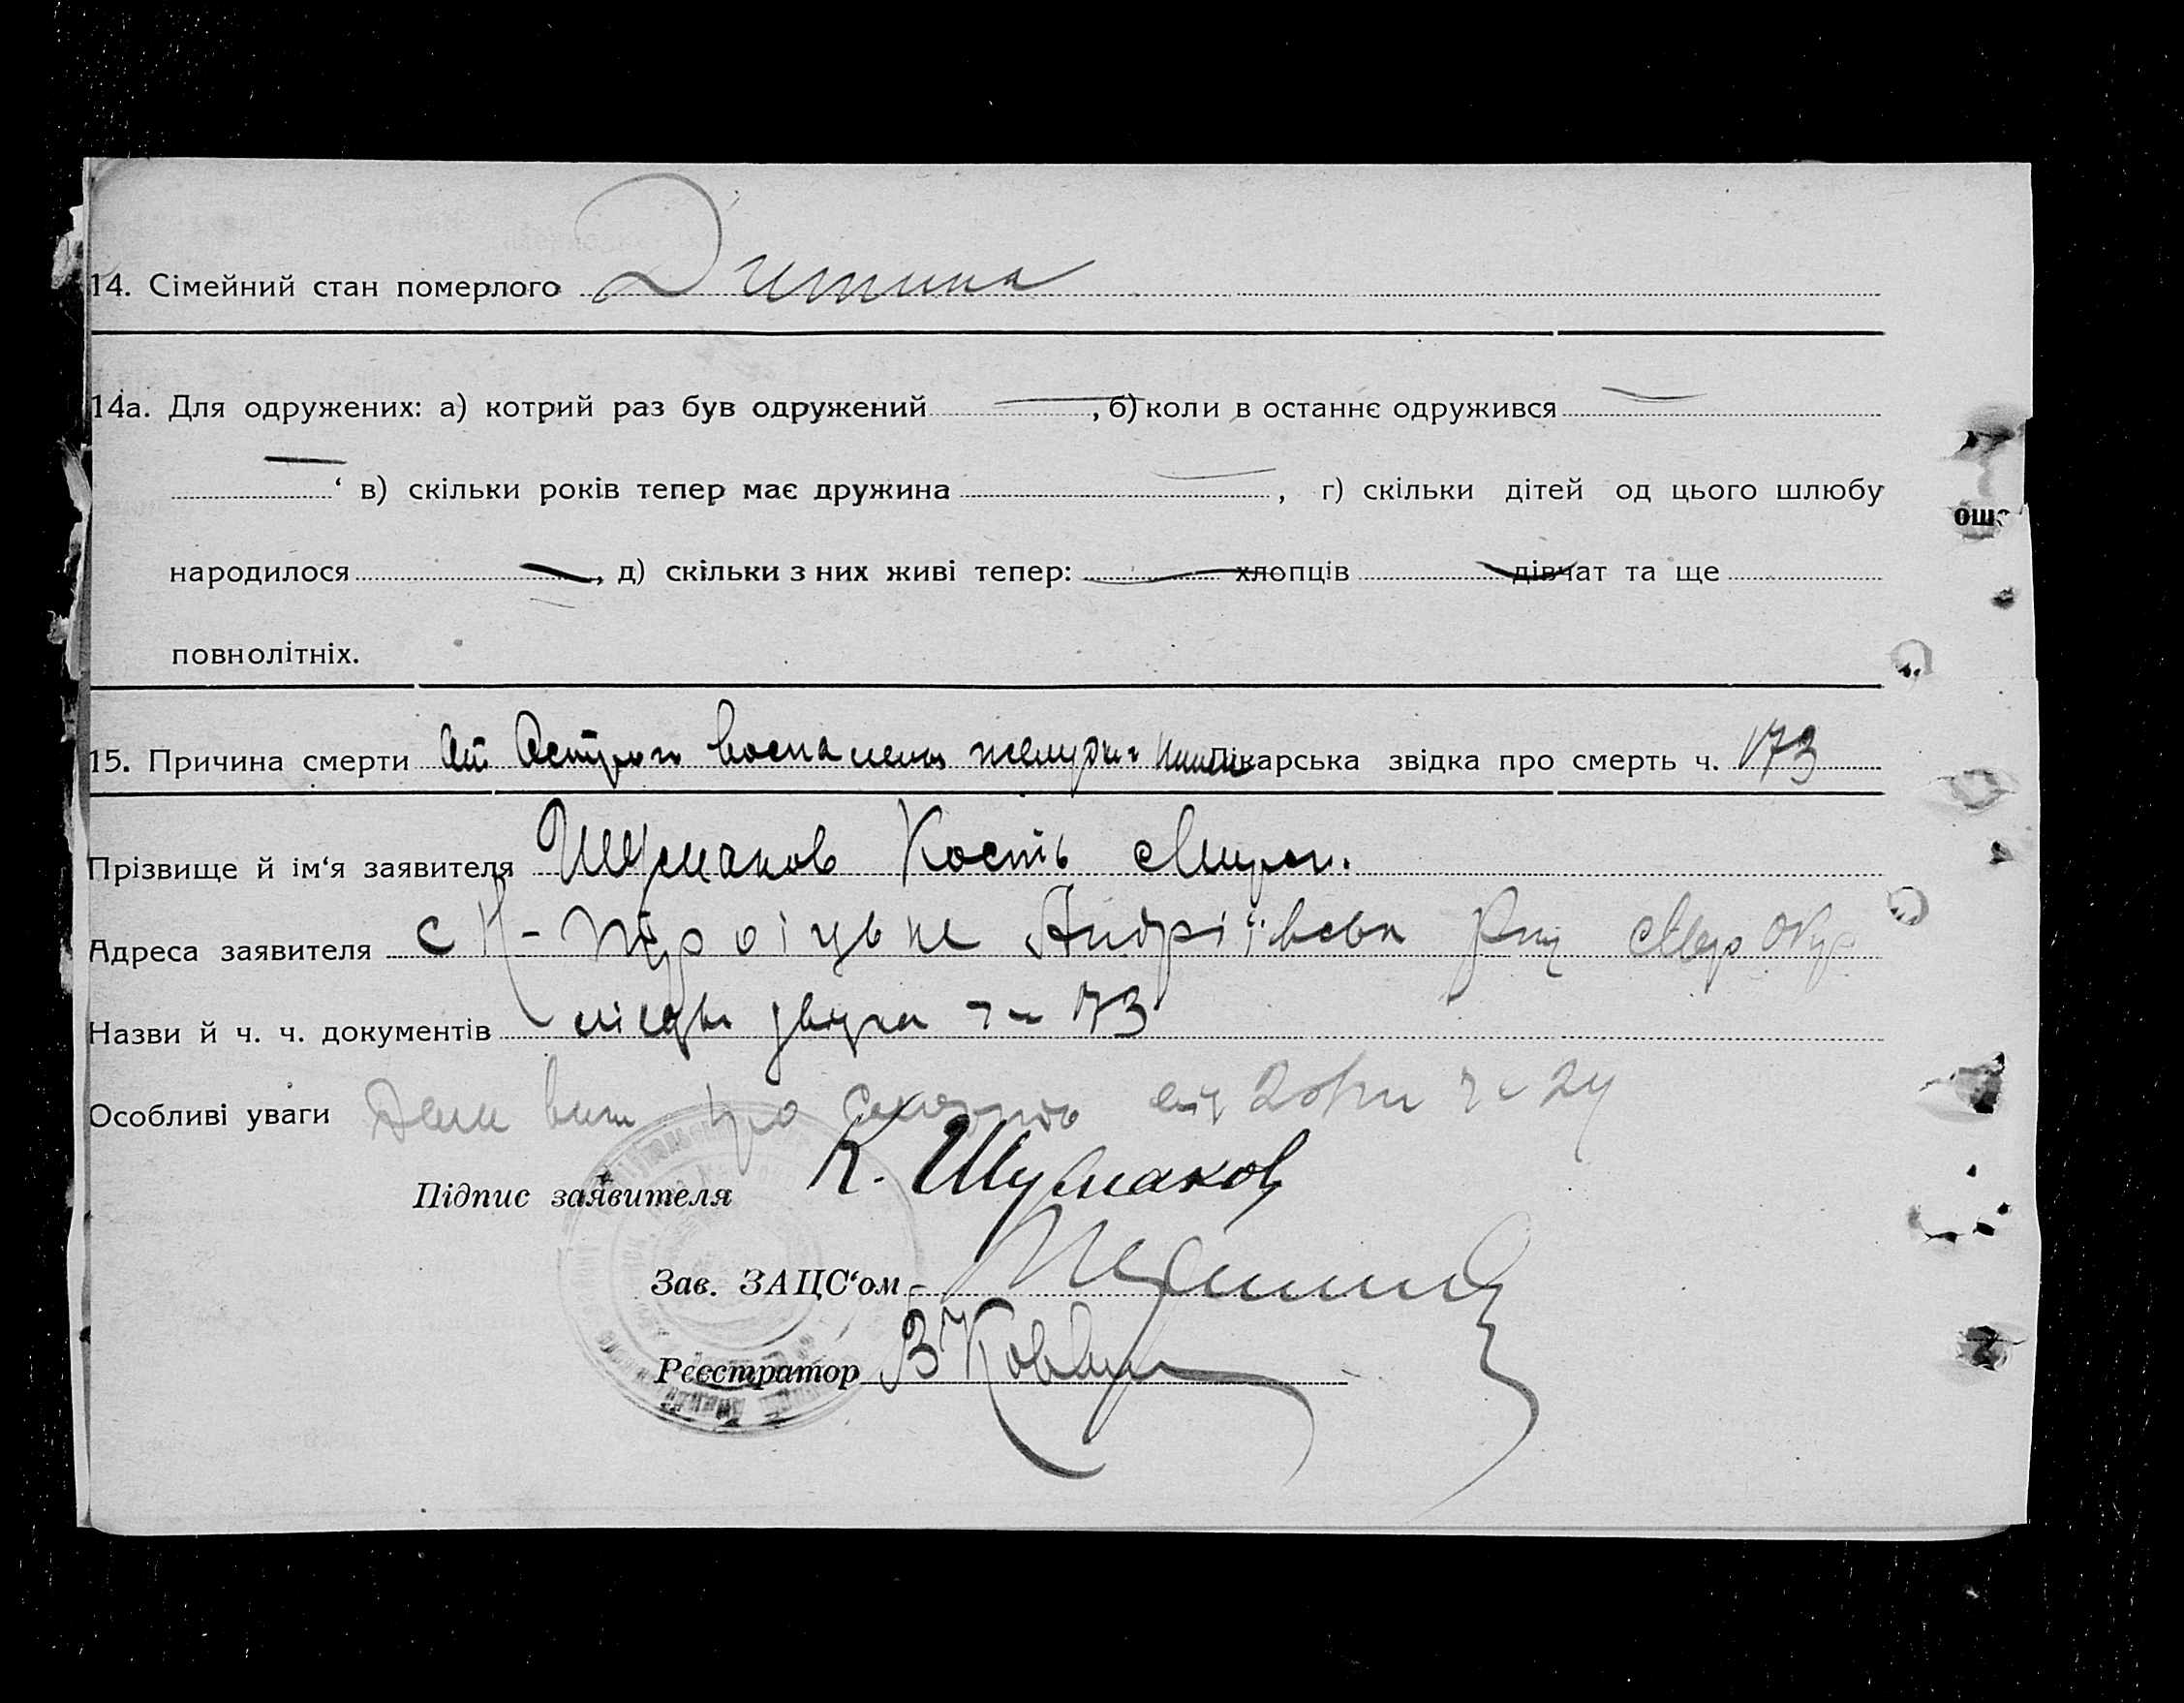 14. Сімейний стан померлого Дитина
14а. Для одружених: а) котрий раз був одружений , б) коли в останнє одружився
‘ в) скільки років тепер має дружина , г) скільки дітей од цього шлюбу
ош
народилося , д) скільки з них живі тепер: хлопців дівчат та ще
повнолітніх.
15. Причина смерти От Острого воспаления желудка Лікарська звідка про смерть ч. 173
Прізвище й ім‘я заявителя Шумаков Кость Мирон.
Адреса заявителя с Н-Троїцьке Андріївськ Мар Окр
Назви й ч. ч. документів звідка ч 173
Особливі уваги про смерть ч 24
Підпис заявителя К. Шумаков
Зав. ЗАЦС‘ом
Реєстратор В